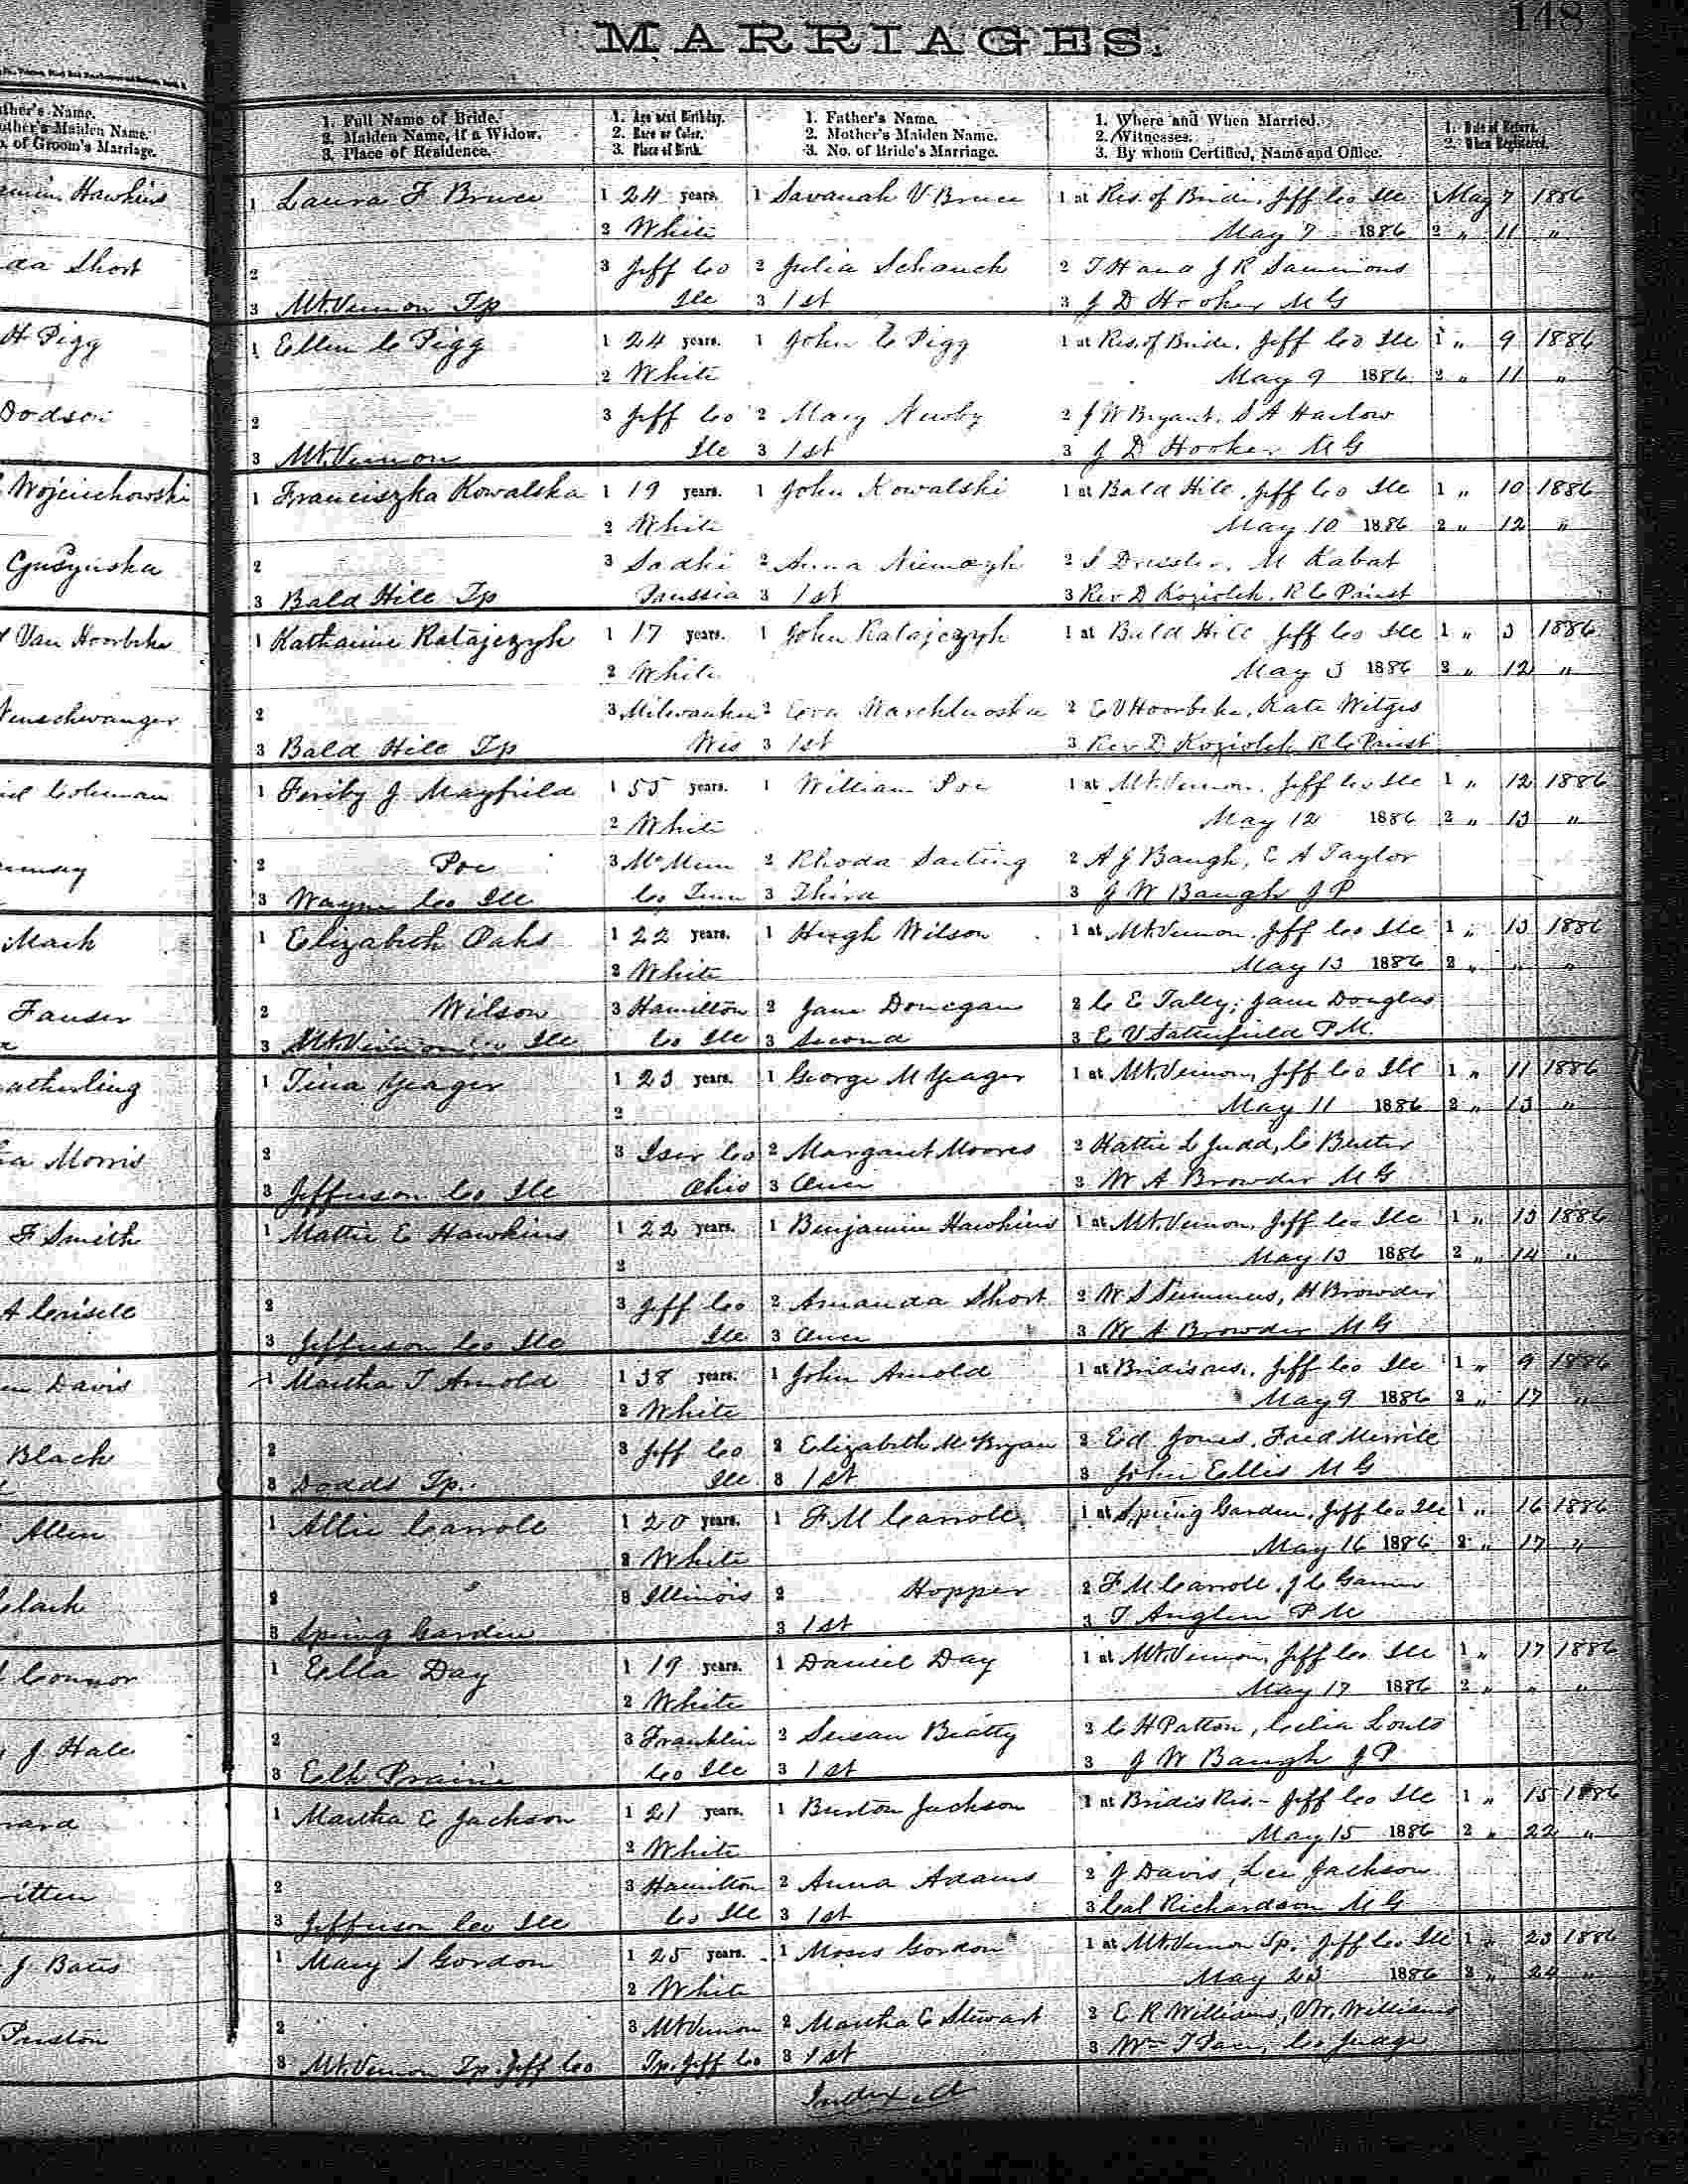 148
MARRIAGES.
ther's Name.
other's Maiden Name.
of Groom's Marriage.
1. Full Name of Bride.
2. Maiden Name, if a Widow.
3. Place of Residence.
1. Age next Birthday.
2. Race or Color.
3. Place of Birth.
1. Father's Name.
2. Mother's Maiden Name.
3. No. of Bride's Marriage.
1. Where and When Married.
2. Witnesses.
3. By whom Certified, Name and Office.
1. Date of Return.
2. When Registered.
Hawkins 1 Laura F Bruce 1 24 years. 1 Savanah V Bruce 1 at Res. of Bride, Jeff Co Ill May 7 1886
2 White May 7 1886 2 " 11 "
da Short 2 3 Jeff Co 2 Julia Schanck 2 T H and J R Sammons
3 Mt. Vernon Tp Ill 3 1st 3 J D Hooker M G
H Pigg 1 Ellen C Pigg 1 24 years. 1 John C Pigg 1 at Res. of Bride, Jeff Co Ill 1 " 9 1886
2 White May 9 1886 2 " 11 "
Dodson 2 3 Jeff Co 2 Mary Newby 2 J W Bryant, S A Harlow
3 Mt. Vernon Ill 3 1st 3 J D Hooker M G
Wojciechowski 1 Franciszka Kowalska 1 19 years. 1 John Kowalski 1 at Bald Hill, Jeff Co Ill 1 " 10 1886
2 White May 10 1886 2 " 12 "
2 3 Sadki 2 Anna 2 S Dressler, M Kabat
3 Bald Hill Tp 3 1st 3 Rev D Koziolek, R C Priest
Van Hoorbeke 1 Katharine Ratajczyk 1 17 years. 1 John Ratajczyk 1 at Bald Hill Jeff Co Ill 1 " 3 1886
2 White May 3 1886 2 " 12 "
2 3 Milwaukee 2 Eva 2 E V Hoorbeke, Kate Witges
3 Bald Hill Tp Wis 3 1st 3 Rev D Koziolek R C Priest
Coleman 1 Feriby J Mayfield 1 55 years. 1 William Poe 1 at Mt. Vernon, Jeff Co Ill 1 " 12 1886
2 White May 12 1886 2 " 13 "
2 Poe 3 McMinn 2 Rhoda 2 A J Baugh, E A Taylor
3 Wayne Co Ill Co Tenn 3 Third 3 J W Baugh J P
Mack 1 Elizabeth Oaks 1 22 years. 1 Hugh Wilson 1 at Mt. Vernon, Jeff Co Ill 1 " 13 1886
2 White May 13 1886 2 " " "
Fauser 2 Wilson 3 Hamilton 2 Jane Donegan 2 C E Tally, Jane Douglas
3 Mt. Vernon Ill Co Ill 3 Second 3 E V Satterfield P.M.
atherling 1 Tina Yeager 1 23 years. 1 George M Yeager 1 at Mt. Vernon, Jeff Co Ill 1 " 11 1886
2 May 11 1886 2 " 13 "
Morris 2 3 Co 2 Margaret Moores 2 Hattie L Judd, C
3 Jefferson Co Ill Ohio 3 3 W A Browder M G
F Smith 1 Mattie E Hawkins 1 22 years. 1 Benjamin Hawkins 1 at Mt. Vernon, Jeff Co Ill 1 " 13 1886
2 May 13 1886 2 " 14 "
2 3 Jeff Co 2 Amanda Short 2 W S Summers, H Browder
3 Jefferson Co Ill Ill 3 3 W A Browder M G
Davis 1 Martha T Arnold 1 38 years. 1 John Arnold 1 at Brides res. Jeff Co Ill 1 " 9 1886
2 White May 9 1886 2 " 17 "
Black 2 3 Jeff Co 2 Elizabeth McBryan 2 Ed Jones, Fred Merrill
3 Dodds Tp. Ill 3 1st 3 John Ellis M G
Allen 1 Allie Carroll 1 20 years. 1 F. M Carroll 1 at Spring Garden, Jeff Co Ill 1 " 16 1886
2 White May 16 1886 2 " 17 "
Clark 2 3 Illinois 2 Hopper 2 F M Carroll, J C
3 Spring Garden 3 1st 3 T Anglen P M
Connor 1 Ella Day 1 19 years. 1 Daniel Day 1 at Mt. Vernon, Jeff Co Ill 1 " 17 1886
2 White May 17 1886 2 " " "
J. Hale 2 3 Franklin 2 Susan Beatty 2 C H Patton, Celia Louts
3 Elk Prairie Co Ill 3 1st 3 J W Baugh J P
1 Martha E Jackson 1 21 years. 1 Burton Jackson 1 at Brides Res. Jeff Co Ill 1 " 15 1886
2 White May 15 1886 2 " 22 "
itten 2 3 Hamilton 2 Anna Adams 2 J Davis, Lee Jackson
3 Jefferson Co Ill Co Ill 3 1st 3 Cal Richardson M G
J. Bates 1 Mary S Gordon 1 25 years. 1 Moses Gordon 1 at Mt. Vernon Tp. Jeff Co Ill 1 " 23 1886
2 White May 23 1886 2 " 24 "
Preston 2 3 Mt Vernon 2 Martha E Stewart 2 E R Williams, W. Williams
3 Mt. Vernon Tp. Jeff Co Tp. Jeff Co 3 1st 3 Wm T Pace, Co Judge
Indexed